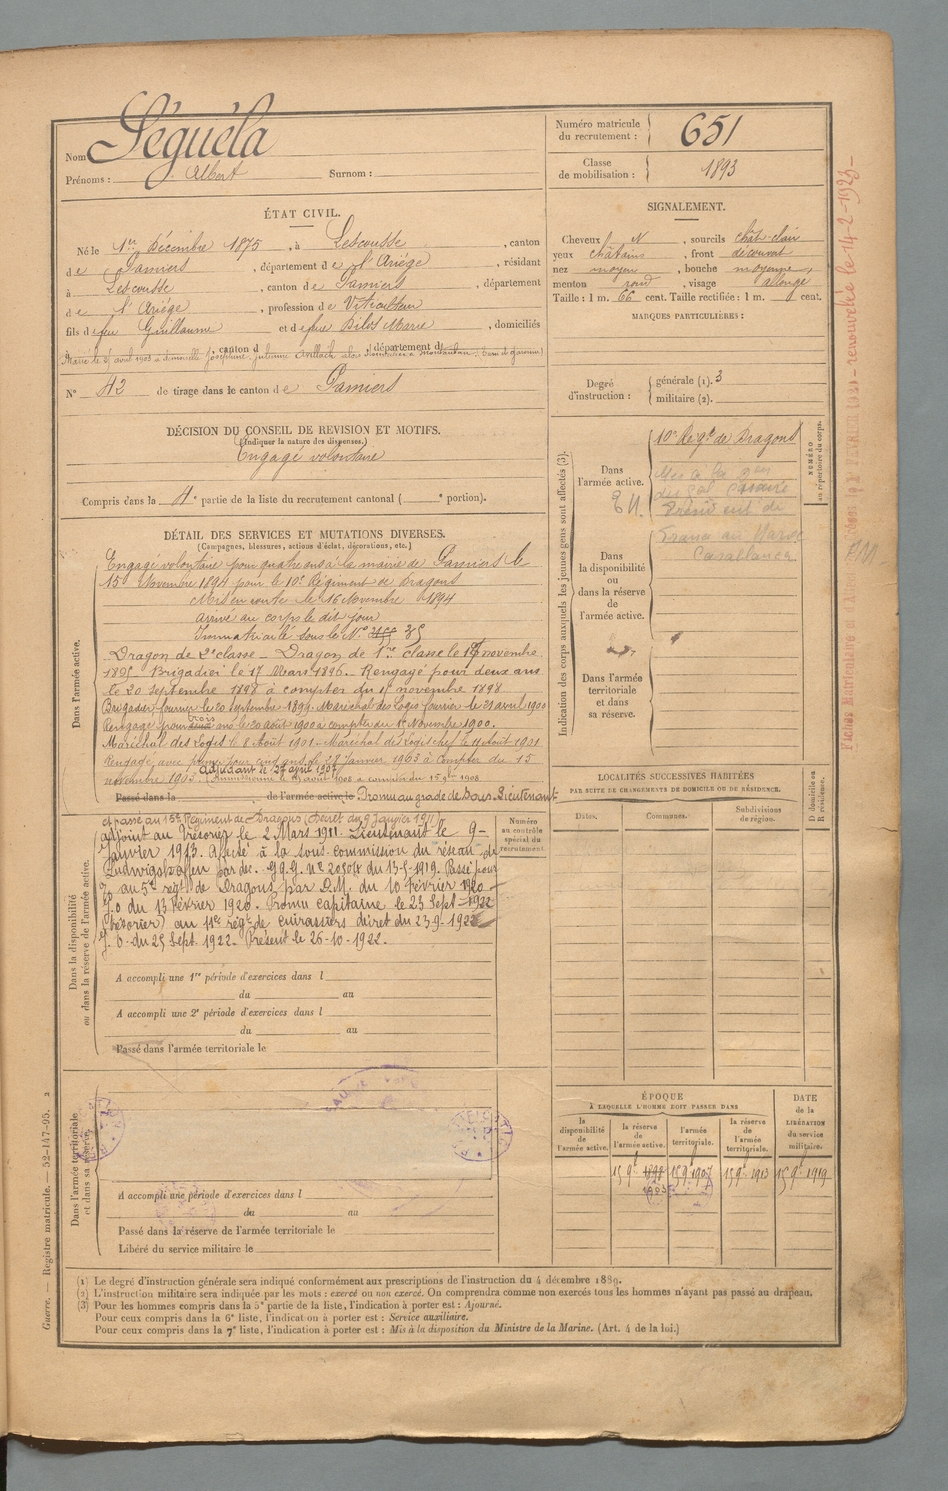 Nom Séguéla
Prénoms : Albert Surnom :
Numéro matricule du recrutement : 651
Classe de mobilisation : 1893
ÉTAT CIVIL.
Né le 1er Décembre 1875, à Lescousse, canton
de Pamiers, département de l'Ariège, résidant
à Lescousse, canton de Pamiers, département
de l'Ariège, profession de Viticulteur
fils de feu Guillaume et de feu Bilos Marie, domiciliés
, canton d , département d
Marié le 25 avril 1903 à demoiselle Joséphine, Julienne
N° 42 de tirage dans le canton de Pamiers
SIGNALEMENT.
Cheveux N, sourcils chât-clair
yeux châtains, front découvert
nez moyen, bouche moyenne,
menton rond, visage allongé
Taille : 1 m. 66 cent. Taille rectifiée : 1 m. cent.
MARQUES PARTICULIÈRES :
Degré d'instruction : générale (1). 3
militaire (2).
DÉCISION DU CONSEIL DE REVISION ET MOTIFS.
(Indiquer la nature des dispenses.)
Engagé volontaire
Compris dans la 4e partie de la liste du recrutement cantonal ( e portion).
DÉTAIL DES SERVICES ET MUTATIONS DIVERSES.
(Campagnes, blessures, actions d'éclat, décorations, etc.)
Dans l'armée active.
Engagé volontaire pour quatre ans à la mairie de Pamiers le
15 Novembre 1894 pour le 10e Régiment de Dragons
Mis en route le 16 Novembre 1894
Arrivé au corps le dit jour
Immatriculé sous le N°
Dragon de 2e classe - Dragon de 1re classe le novembre
1895 - Brigadier le 17 Mars 1896. Rengagé pour deux ans
le 20 septembre 1898 à compter du 15 novembre 1898
Brigadier fourrier le 20 septembre 1899. Maréchal des Logis fourrier le 21 avril 1900
Rengagé pour trois ans le 20 août 1900 à compter du 15 Novembre 1900.
Maréchal des Logis le 8 Août 1901. Maréchal des Logis chef le 11 Août 1901
Rengagé avec prime pour cinq ans le 28 janvier 1903 à compter du 15
novembre 1903. Adjudant le 27 avril 1907.
Commissionné le août 1908 à compter du 15 9bre 1908
Passé dans la de l'armée active le Promu au grade de Sous-Lieutenant
et passé au 15e Régiment de Dragons (Décret du 9 Janvier 1911)
Dans la disponibilité ou dans la réserve de l'armée active.
Adjoint au Trésorier le 2 Mars 1911. Lieutenant le 9
Janvier 1913. Affecté à la sous-commission du réseau de
Ludwigshafen par déc. G.Q.G. du 13-5-1919. Passé pour
au 5e régt de Dragons par D.M. du 10 Février 1920
J.O du 13 Février 1920. Promu capitaine le 23 Sept 1922
(trésorier) au 11e régt de cuirassiers décret du 23-9-1922
J.O. du 25 Sept. 1922. Présent le 26-10-1922.
A accompli une 1re période d'exercices dans l
du au
A accompli une 2e période d'exercices dans l
du au
Passé dans l'armée territoriale le
Numéro au contrôle spécial du recrutement.
Dans l'armée territoriale et dans sa réserve.
A accompli une période d'exercices dans l
du au
Passé dans la réserve de l'armée territoriale le
Libéré du service militaire le
Indication des corps auxquels les jeunes gens sont affectés (3).
NUMÉRO au répertoire du corps.
Dans l'armée active.
10e Régt de Dragons
Casablanca
Dans la disponibilité ou dans la réserve de l'armée active.
Dans l'armée territoriale et dans sa réserve.
LOCALITÉS SUCCESSIVES HABITÉES
PAR SUITE DE CHANGEMENTS DE DOMICILE OU DE RÉSIDENCE.
Dates. Communes. Subdivisions de région. D domicile ou R résidence.
ÉPOQUE
À LAQUELLE L'HOMME DOIT PASSER DANS
la disponibilité de l'armée active. la réserve de l'armée active. l'armée territoriale. la réserve de l'armée territoriale.
DATE de la LIBÉRATION du service militaire.
15 9bre 1898 15 9bre 1907 15 9bre 1913 15 9bre 1919
1903
renouvelée le 14-2-1923
Guerre. — Registre matricule. — 52-147-95. 2
(1) Le degré d'instruction générale sera indiqué conformément aux prescriptions de l'instruction du 4 décembre 1889.
(2) L'instruction militaire sera indiquée par les mots : exercé ou non exercé. On comprendra comme non exercés tous les hommes n'ayant pas passé au drapeau.
(3) Pour les hommes compris dans la 5e partie de la liste, l'indication à porter est : Ajourné.
Pour ceux compris dans la 6e liste, l'indication à porter est : Service auxiliaire.
Pour ceux compris dans la 7e liste, l'indication à porter est : Mis à la disposition du Ministre de la Marine. (Art. 4 de la loi.)